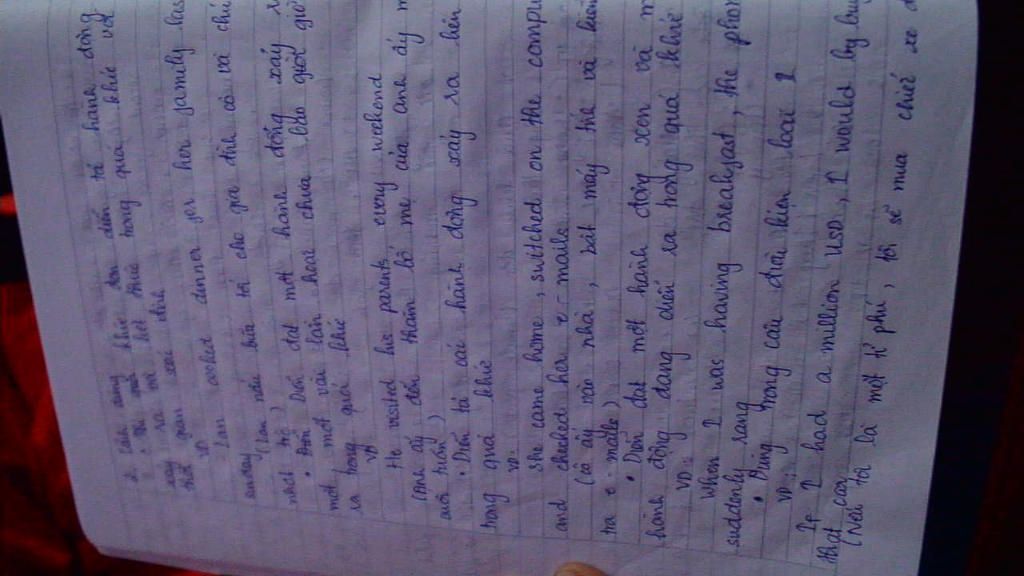 2. Cách dùng thì quá khứ đơn
• diễn tả hành động
xảy ra và kết thúc trong quá khứ với
thời gian xác định
VD
Lan cooked dinner for her family las
sunday
(Lan nấu bữa tối cho gia đình cô vào chủ
nhật
• Diễn đạt một hành động xảy r
một một vài lần hoặc chưa bao giờ
ra trong quá khứ
VD
He visited his parents every weekend
(anh ấy đến thăm bố mẹ của anh ấy m
cuối tuần)
• Diễn tả các hành động xảy ra liên
trong quá khứ
VD:
She came home, switched on the compu
and checked her e-mails
(cô ấy vào nhà, bật máy và kiểm
tra e-mails)
• Diễn đạt một hành động xen vào m
hành động đang diễn ra trong quá khứ
VD:
When I was having breakfast, the phon
suddenly rang
• Dùng trong câu điều kiện loại 2
VD:
If I had a million USD, I would by
that car
(Nếu tôi là một tỉ phú, tôi sẽ mua chiếc xe đ